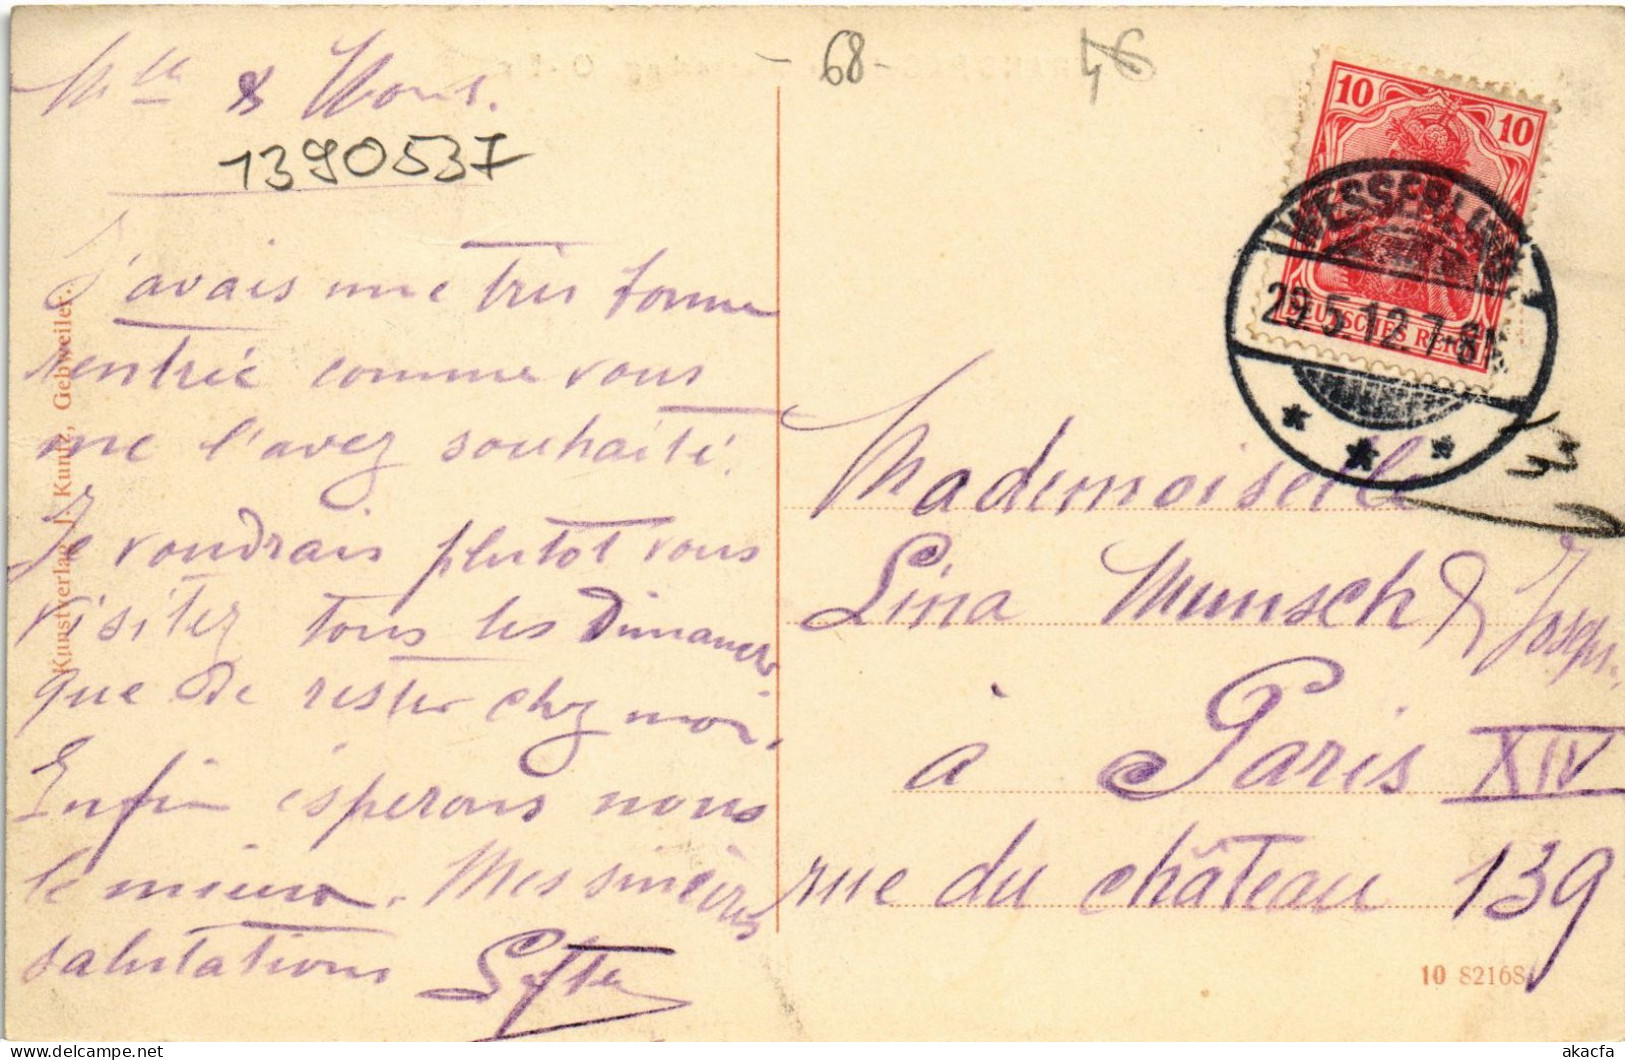 - 68 -
46
Mlle & Mons.
1390537
J'avais une très bonne
rentrée comme vous
me l'avez souhaité.
Je voudrais plutot vous
visitez tous les Dimanche
que de rester chez moi.
Enfin espérons nous
le mieux. Mes sincères
salutations
Kunstverlag J. Kuntz, Gebweiler.
10 10
DEUTSCHES REICH
WESSERLING
29.5.12.7-8N
Mademoiselle
Lina Munsch & Joseph
à Paris XIV
rue du château 139
10 82168
akacfa